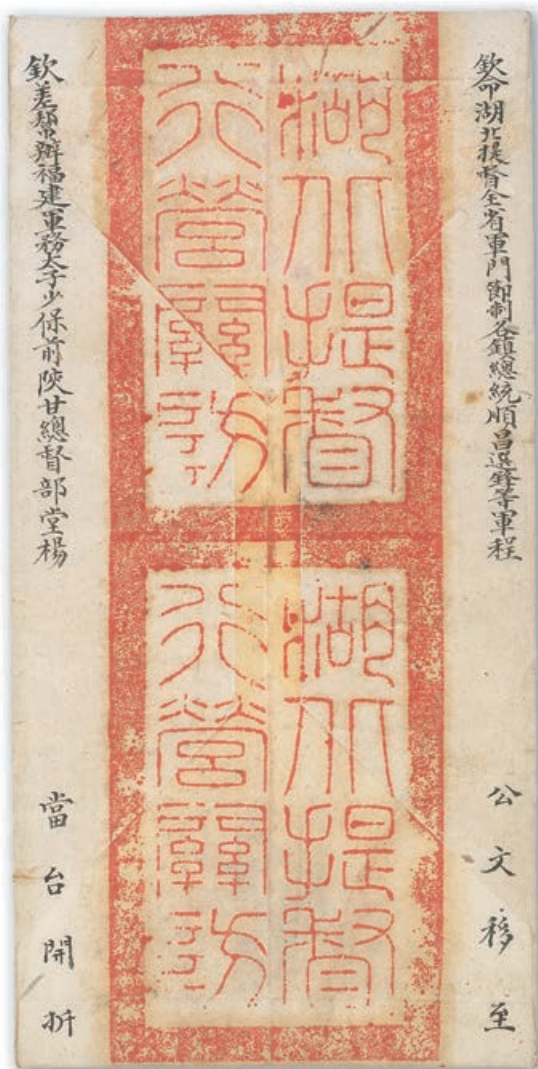 欽命湖北提督全省軍門節制各鎮總統順昌選鋒等軍程
公文移至
湖北提督
行營關防
湖北提督
行營關防
欽差幫辦福建軍務太子少保前陝甘總督部堂楊
當台開拆